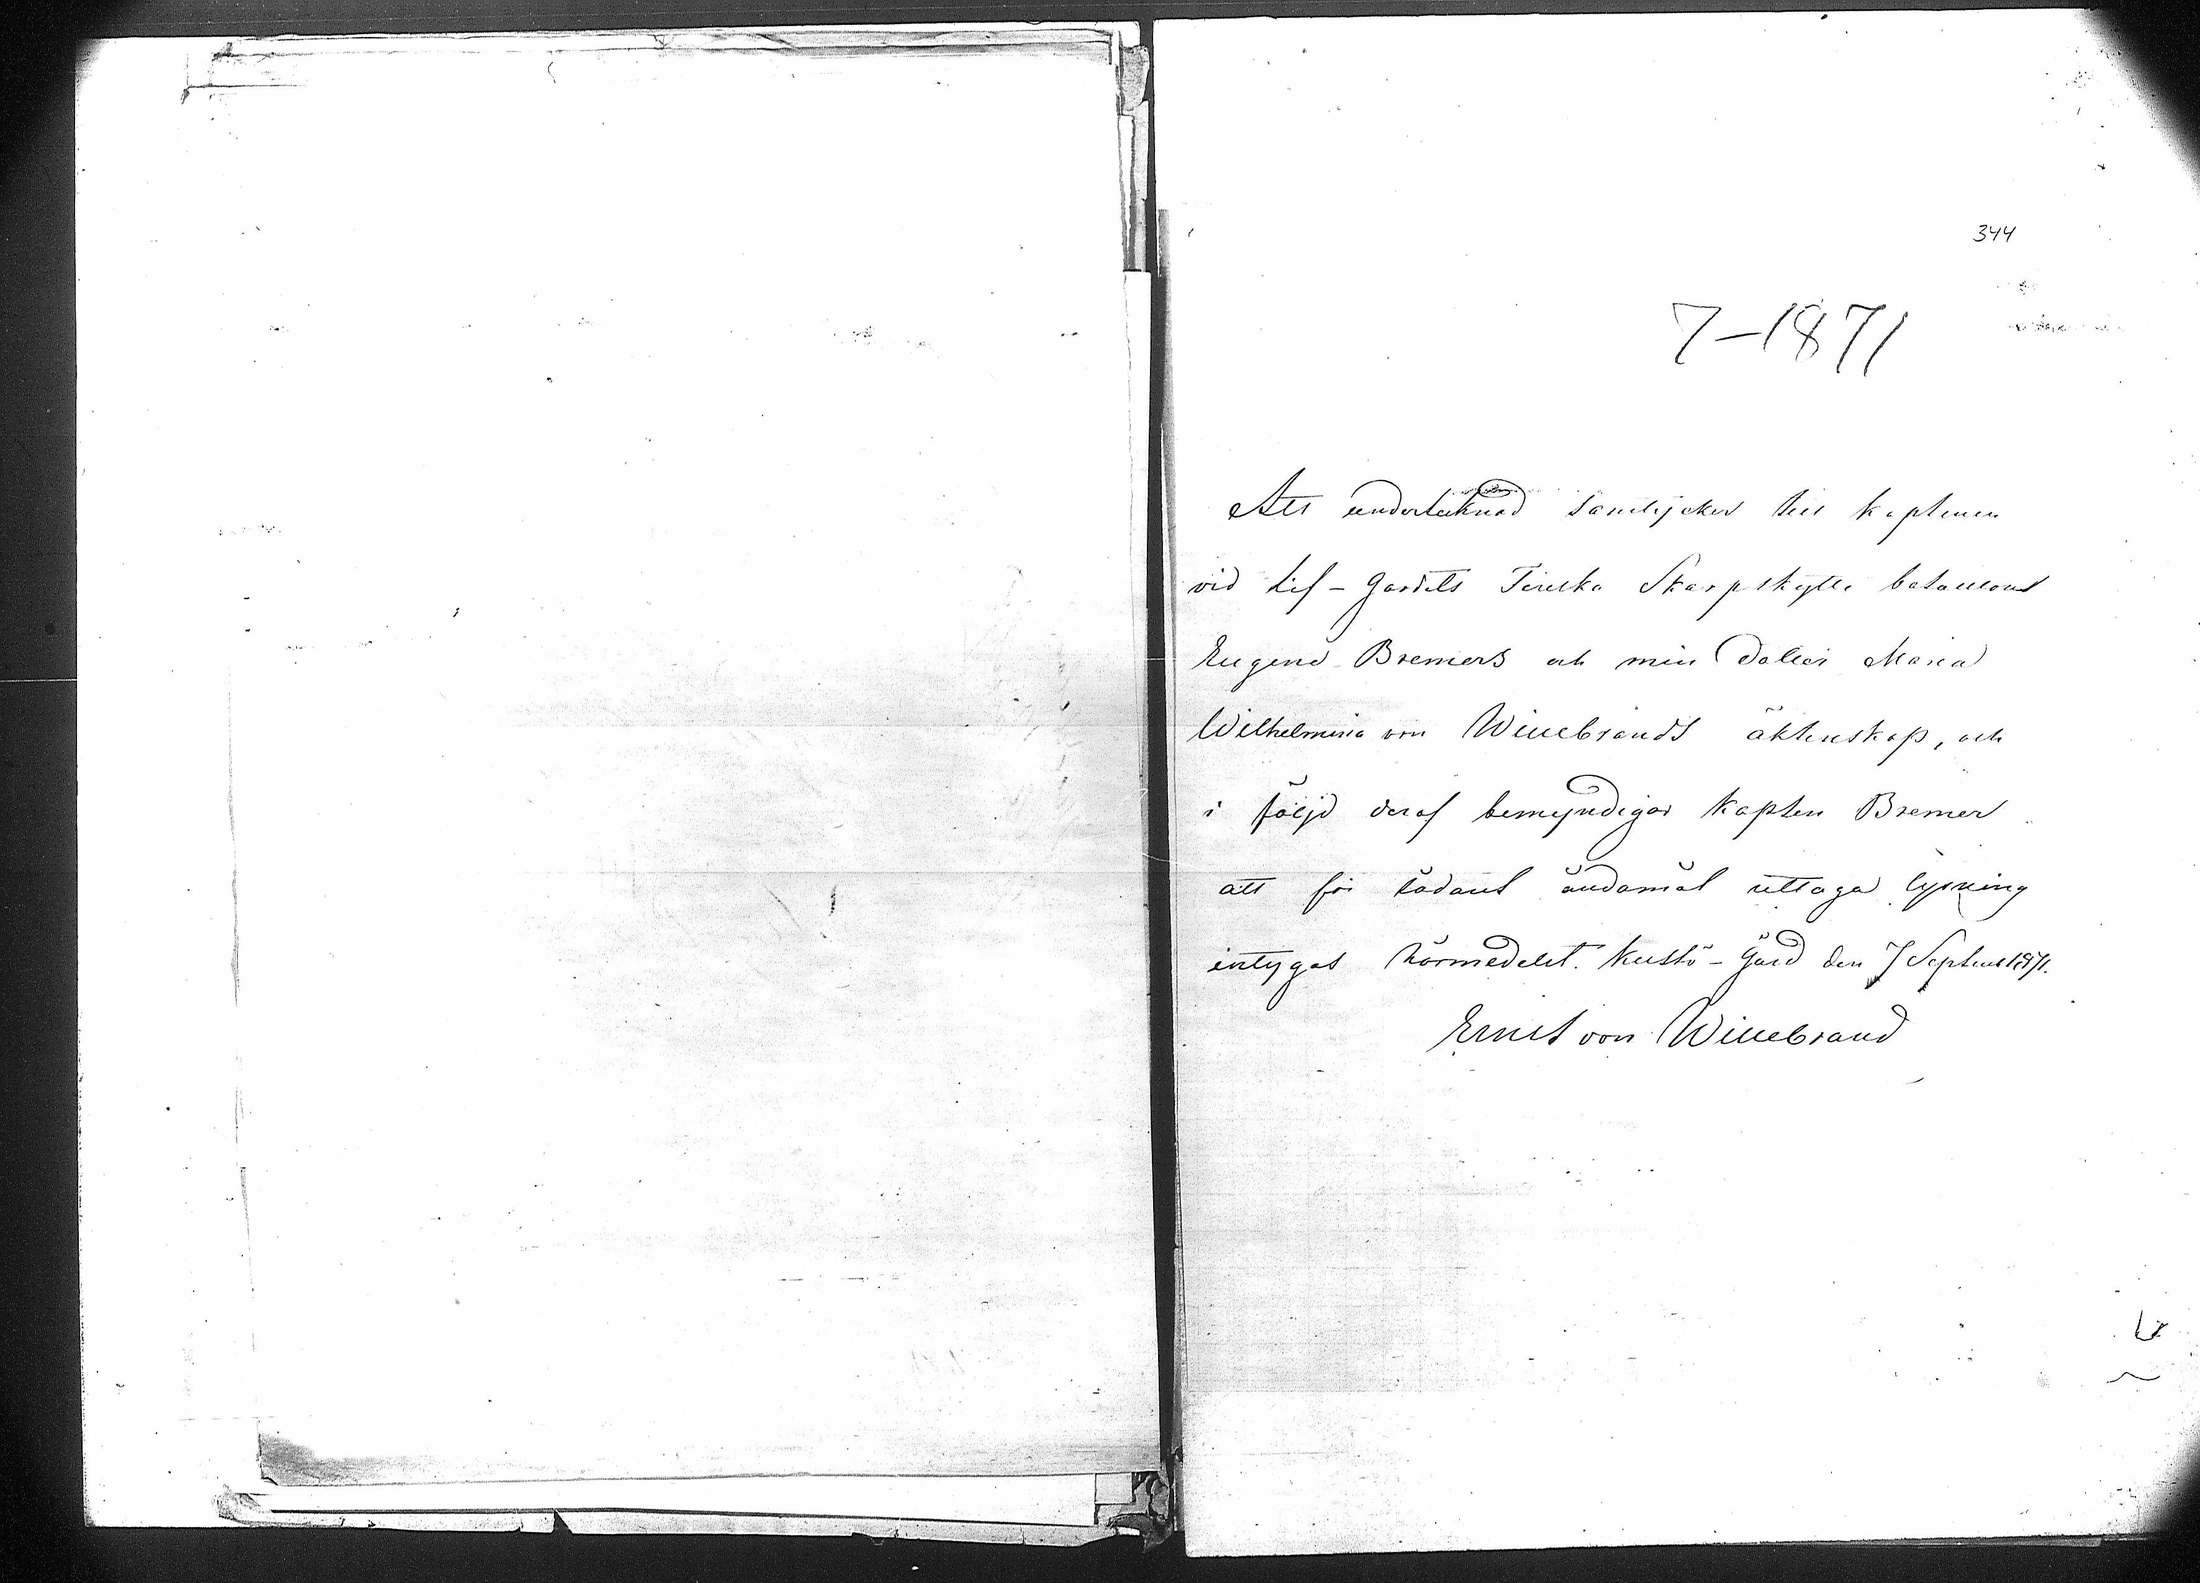 344
7-1871
Att undertecknad samtycker till kaptenen
vid Lif-Gardets Finska Skarpskytte bataillond
Eugene Bremers och min dotter Maria
Wilhelmina von Willebrands äktenskap, och
i följd deraf bemyndigar kapten Bremer
att för sådant ändamål uttaga lysning
intygas härmedelst. Kustö-Gård den 7 Septemb 1871.
Ernst von Willebrand